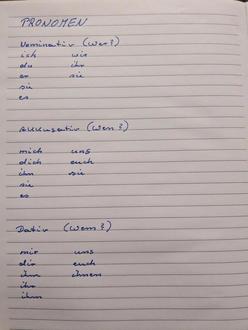 PRONOMEN
Nominativ (Wer?)
ich wir
du ihr
er sie
sie
es
Akkusativ (Wen?)
mich uns
dich euch
ihn sie
sie
es
Dativ (Wem?)
mir uns
dir euch
ihm ihnen
ihr
ihm